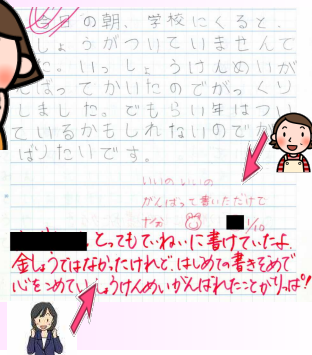 今日の朝、学校にくると、
しょうがついていませんで
た。いっしょうけんめいが
ばってかいたのでがっくり
しました。でもらい年はつい
ているかもしれないのでが
ばりたいです。
いいのいいの
がんばって書いただけで
十分
1/10
とってもていねいに書けていたよ。
金しょうではなかったけれど、はじめての書きぞめで
心をこめていっしょうけんめいがんばれたことがりっぱ!